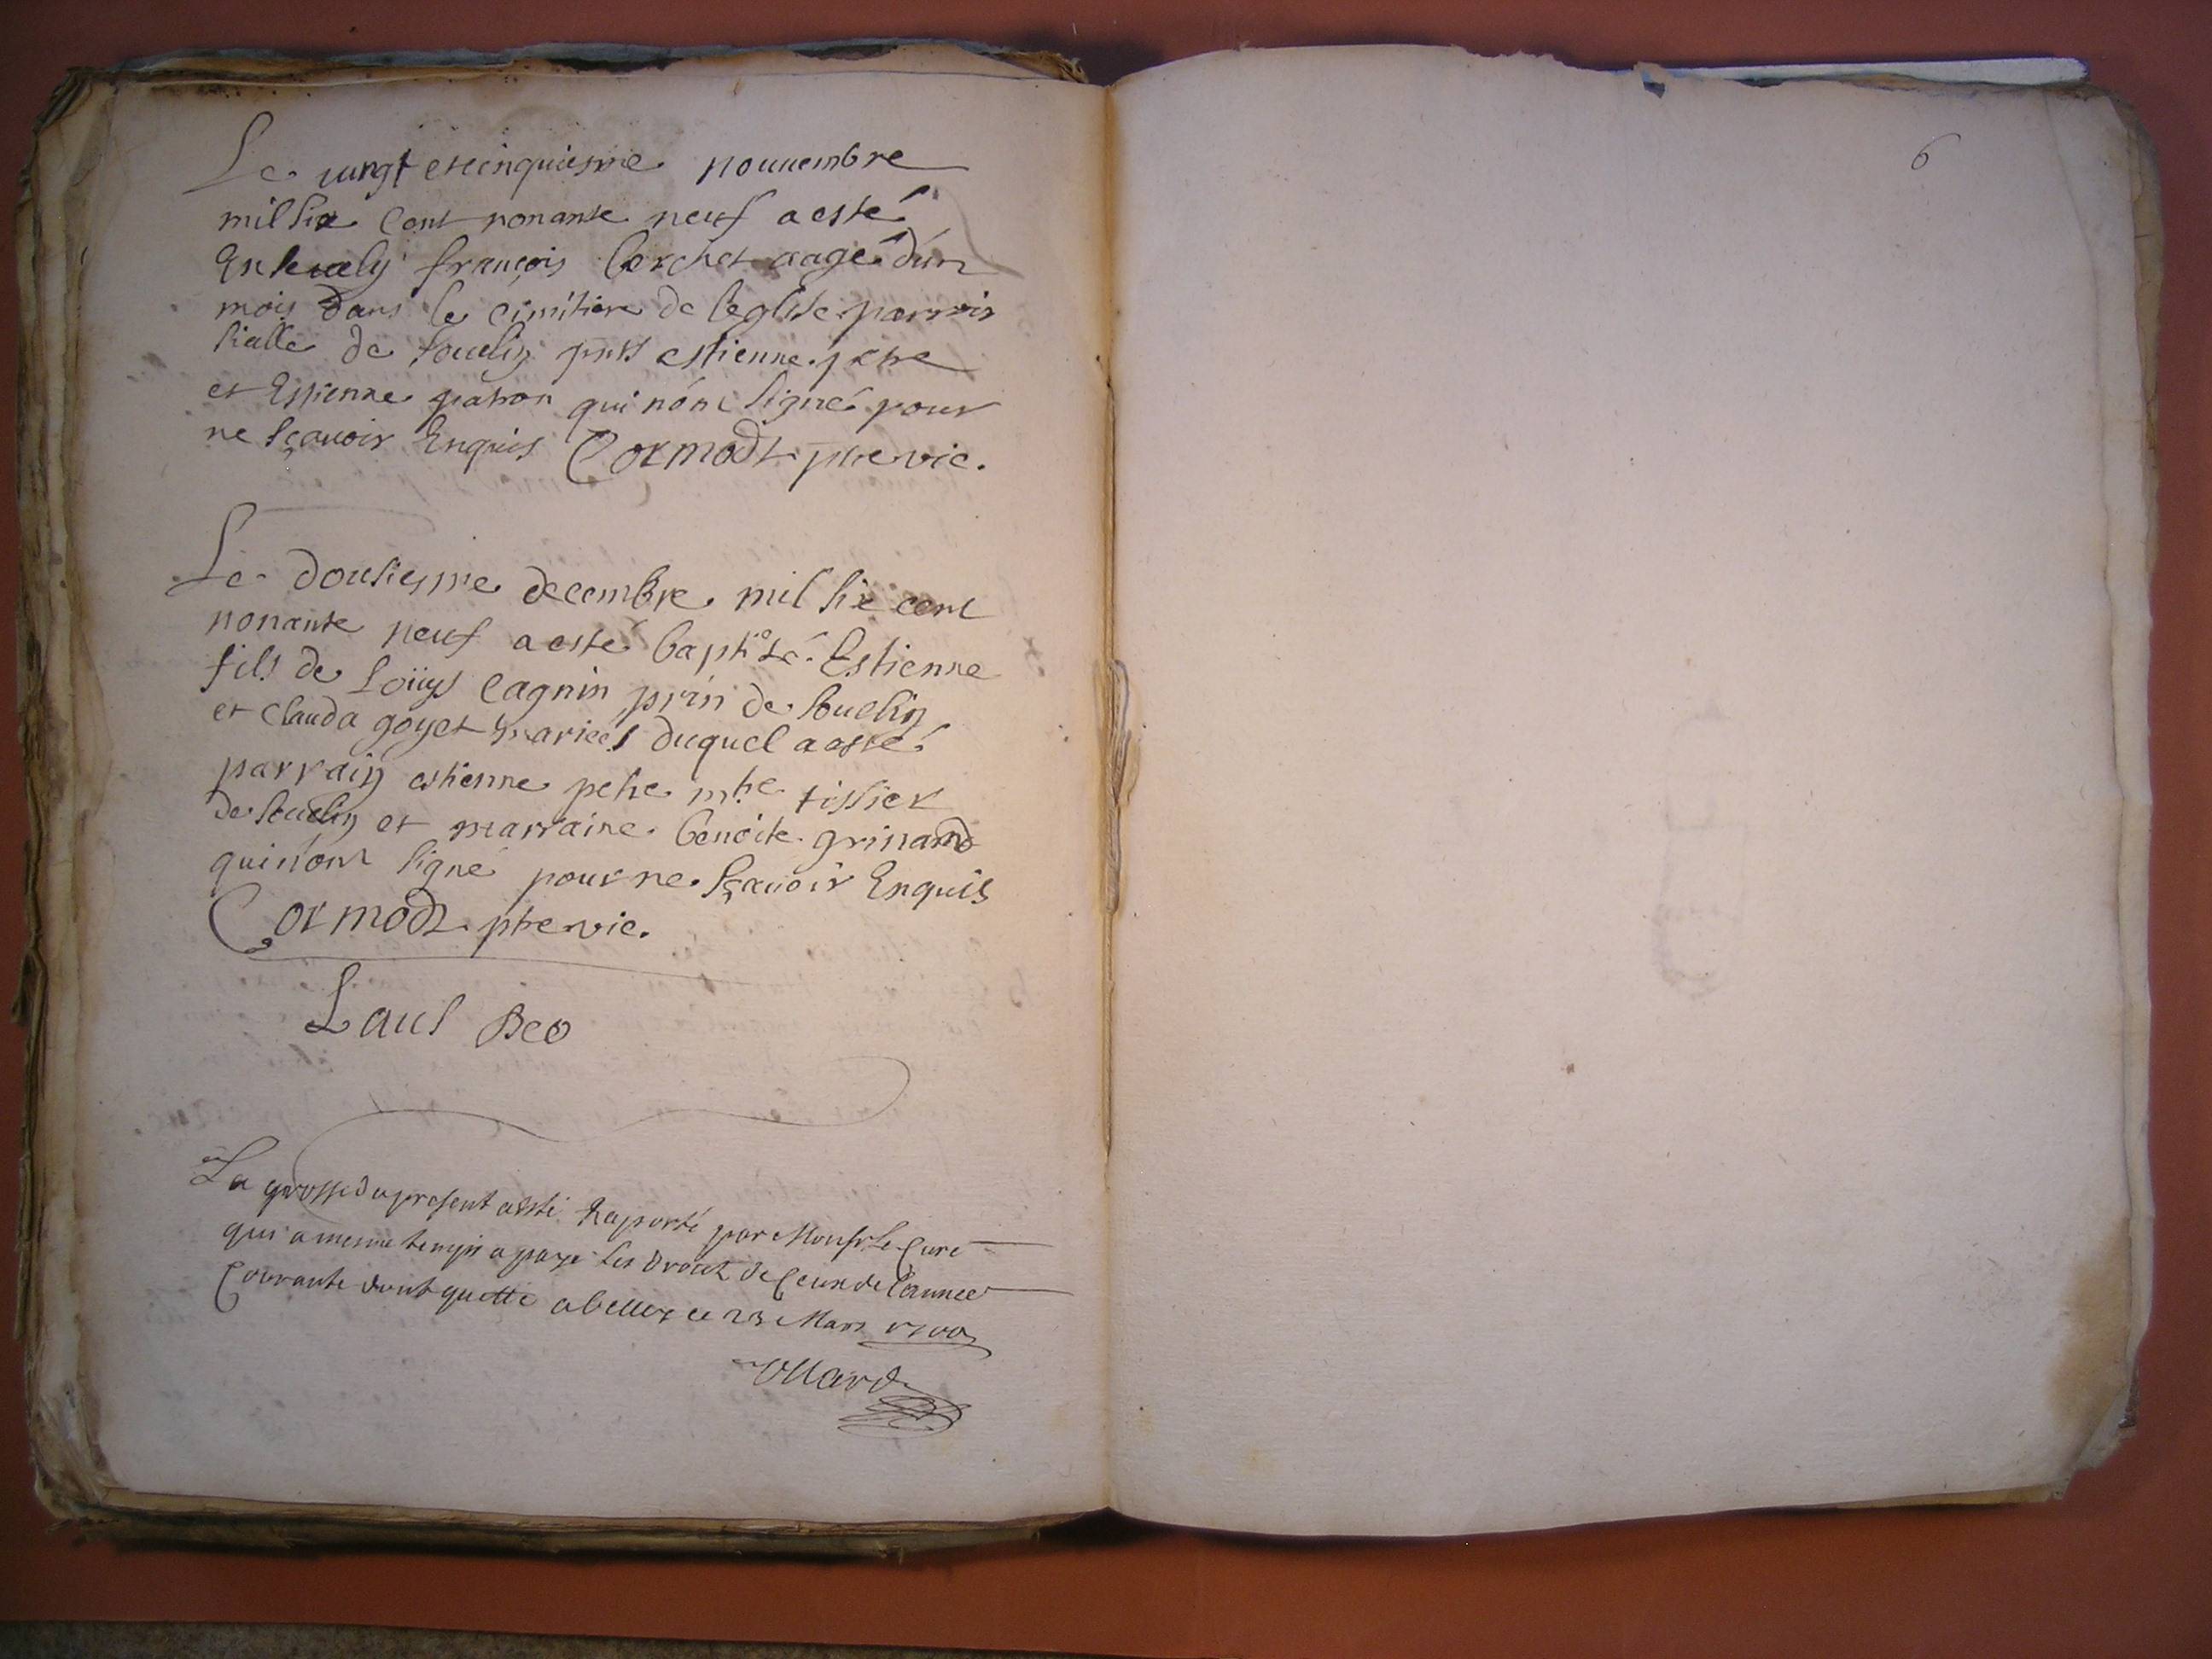 Le vingt etcinquiesme nouuembre
mil six cent nonante neuf a esté
Enseuely françois berchet aagé d'un
mois dans le cimitiere de leglise parrois
sialle de souclin pnts estienne petre
et Estienne patron qui nont signé pour
ne sçauoir Enquis Cormodz pbre vic.
Le dousiesme decembre mil six cent
nonante neuf a esté baptisé Estienne
fils de Loüys Cagnin prsin de souclin
et Clauda goyet mariées duquel a esté
parrain estienne petre mtre tissier
de souclin et marraine benoite grinand
qui n'ont signé pour ne sçauoir Enquis
Cormodz pbre vic.
Laus Deo
La grosse du present a esté Raporté par Monsr Le Curé
qui a mesme temps a payé les droits de ceux de l'année
Courante dont quitte a belley ce 23 Mars 1700
6